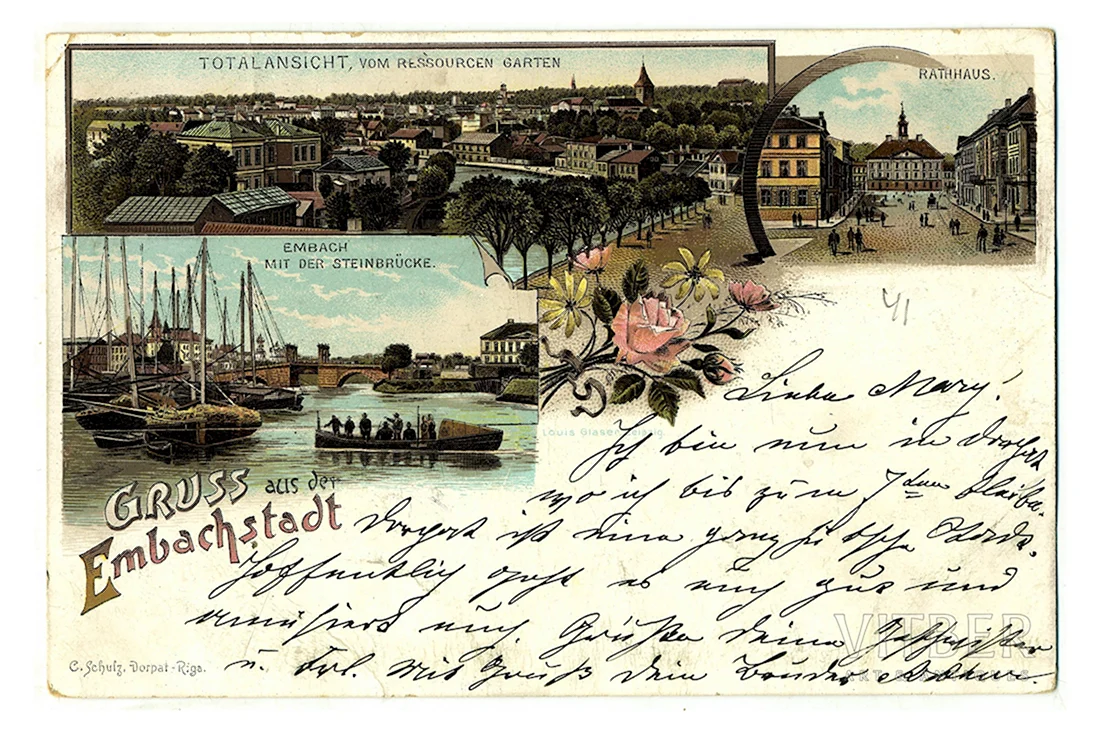 TOTALANSICHT, VOM RESSOURCEN GARTEN
RATHHAUS.
EMBACH
MIT DER STEINBRÜCKE.
41
Louis Glaser Leipzig.
GRUSS aus der
Embachstadt
Liebe Mary!
Ich bin nun in Dorpat
wo ich bis zum 7ten bleibe.
Dorpat ist eine ganz hübsche Stadt.
Hoffentlich geht es euch gut und
amüsiert euch. Grüße deine
u. Frl. Mit Gruß dein Bruder
C. Schulz, Dorpat-Riga.
VITBER